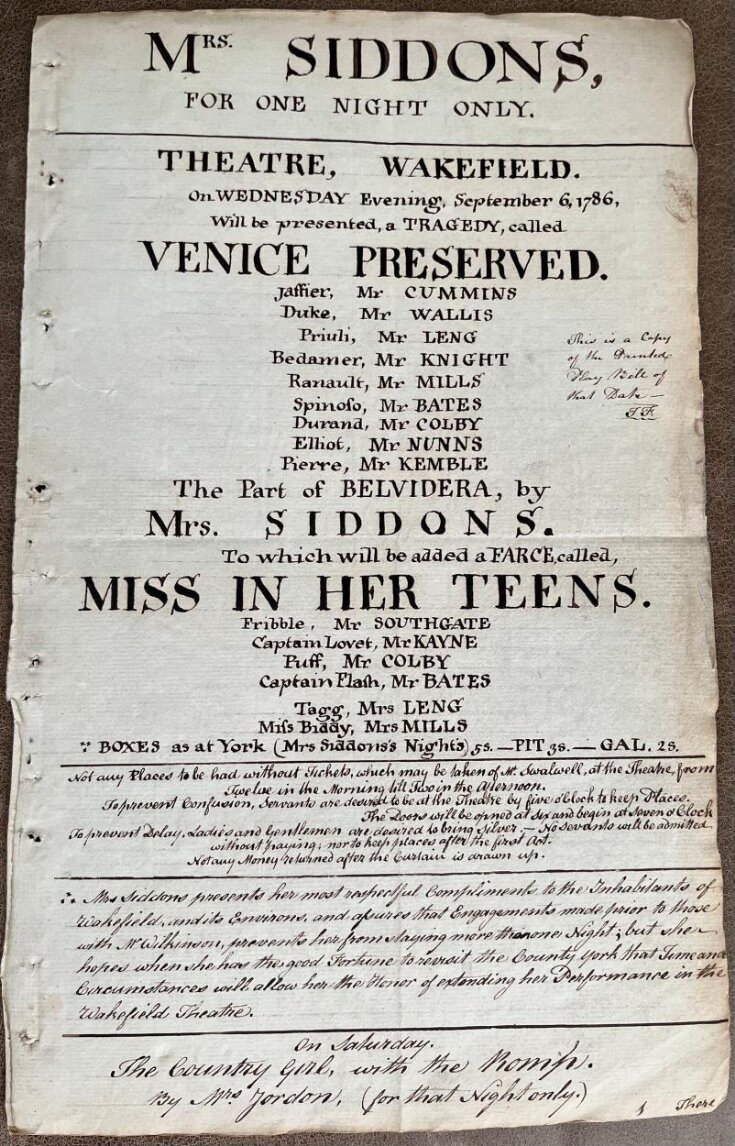 Mrs. SIDDONS,
FOR ONE NIGHT ONLY.
THEATRE, WAKEFIELD.
On WEDNESDAY Evening, September 6, 1786,
Will be presented, a TRAGEDY, called
VENICE PRESERVED.
Jaffier, Mr CUMMINS
Duke, Mr WALLIS
Priuli, Mr LENG
Bedamer, Mr KNIGHT
Ranault, Mr MILLS
Spinoso, Mr BATES
Durand, Mr COLBY
Elliot, Mr NUNNS
Pierre, Mr KEMBLE
This is a Copy
of the Printed
Play Bill of
that Date —
TF
The Part of BELVIDERA, by
Mrs. SIDDONS.
To which will be added a FARCE, called,
MISS IN HER TEENS.
Fribble, Mr SOUTHGATE
Captain Lovet, Mr KAYNE
Puff, Mr COLBY
Captain Flash, Mr BATES
Tagg, Mrs LENG
Miſs Biddy, Mrs MILLS
∵ BOXES as at York (Mrs Siddons's Nights) 5s. — PIT 3s. — GAL. 2s.
Not any Places to be had without Tickets, which may be taken of Mr. Swalwell, at the Theatre, from
Twelve in the Morning till Two in the Afternoon.
To prevent Confusion, Servants are desired to be at the Theatre by five o'Clock to keep Places.
The Doors will be opned at six and begin at Seven o'Clock
To prevent Delay, Ladies and Gentlemen are desired to bring Silver. — No Sevants will be admitted
without paying; nor to keep places after the first Act.
Not any Money returned after the Curtain is drawn up.
∴ Mrs Siddons presents her most respectful Compliments to the Inhabitants of
Wakefield, and its Environs, and aſsures that Engagements made prior to those
with Mr Wilkinson, prevents her from staying more than one Night; but she
hopes when she has the good Fortune to revisit the County York that Time and
Circumstances will allow her the Honor of extending her Performance in the
Wakefield Theatre.
On Saturday.
The Country Girl, with the Romp.
By Mrs Jordon, (for that Night only.)
There